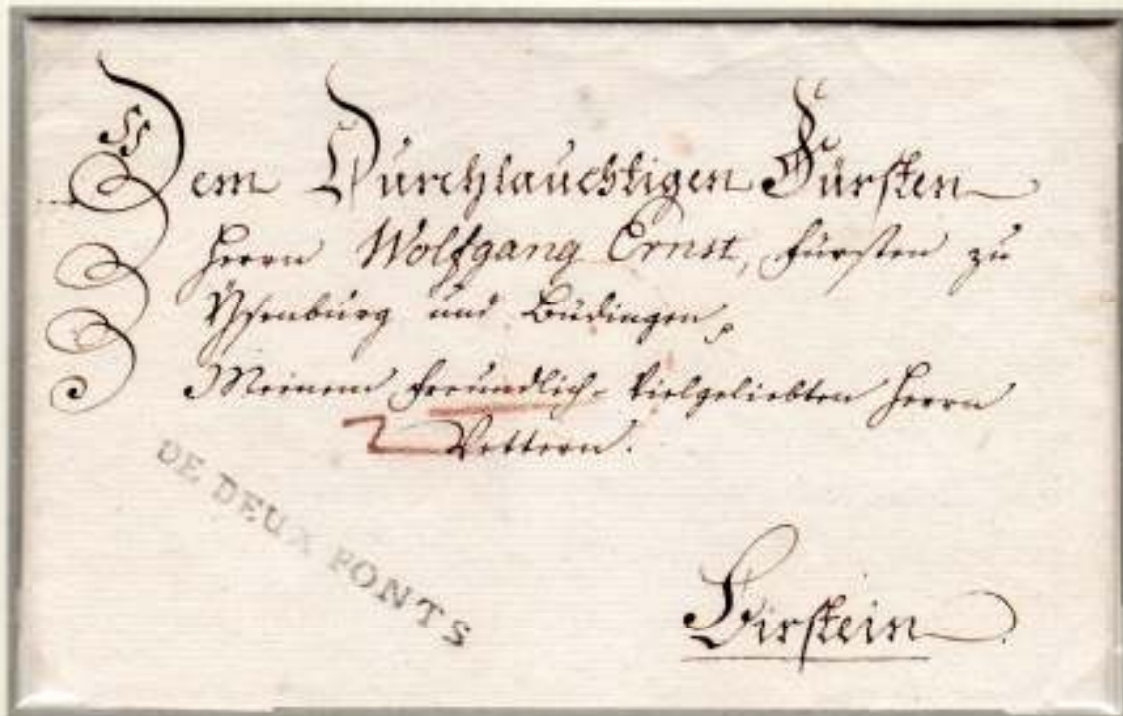 Dem Durchlauchtigen Fürsten
Herrn Wolfgang Ernst, Fürsten zu
Ysenburg und Büdingen,
Meinem freundlich-vielgeliebten Herrn
Vettern.
DE DEUX PONTS
Birstein.